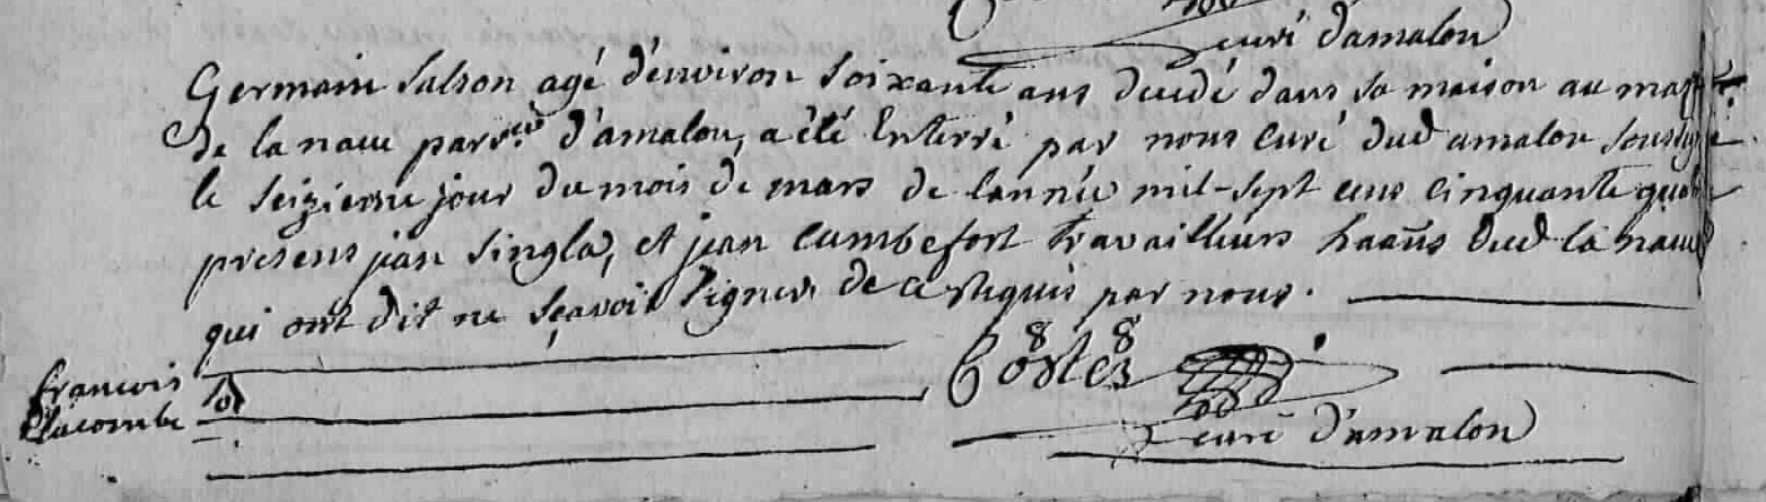 curé d'amalou
Germain salson agé d'environ soixante ans decedé dans sa maison au mas
de la naue parr.ce d'amalou, a été Enterré par nous curé dud amalou soussigné
le seizieme jour du mois de mars de lannée mil-sept cens cinquante quatre
presens jean singla, et jean cambefort travailleurs haãns dud la naue
qui ont dit ne sçavoir signer de ce requis par nous.
Costes
curé d'amalou
francois
lacombe